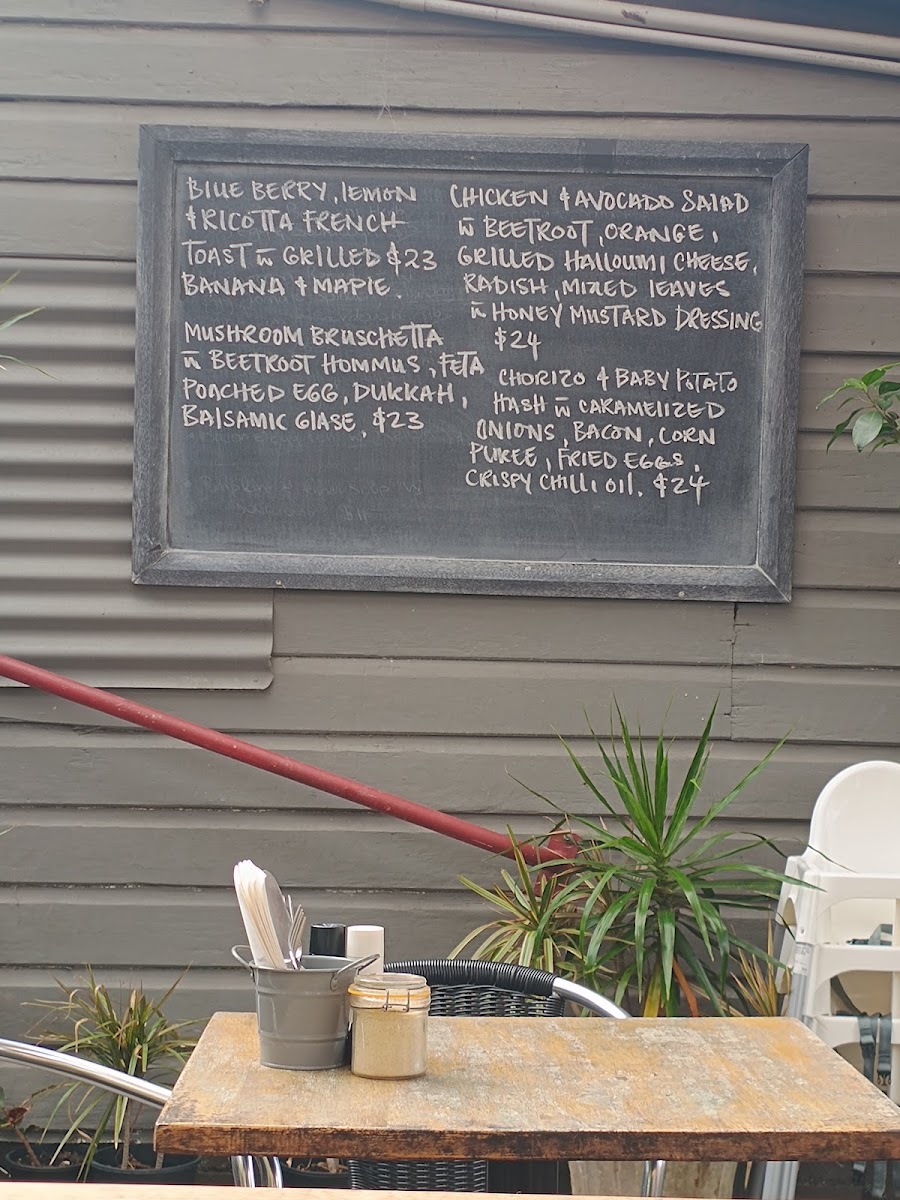 BLUE BERRY, LEMON
& RICOTTA FRENCH
TOAST w̄ GRILLED $23
BANANA & MAPLE.
MUSHROOM BRUSCHETTA
w̄ BEETROOT HOMMUS, FETA
POACHED EGG, DUKKAH,
BALSAMIC GLASE. $23
CHICKEN & AVOCADO SALAD
w̄ BEETROOT, ORANGE,
GRILLED HALLOUMI CHEESE,
RADISH, MIXED LEAVES
w̄ HONEY MUSTARD DRESSING
$24
CHORIZO & BABY POTATO
HASH w̄ CARAMELIZED
ONIONS, BACON, CORN
PUREE, FRIED EGGS,
CRISPY CHILLI OIL. $24